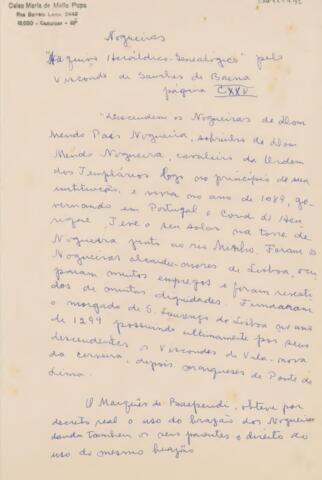 Celso Maria de Mello Pupo
Rua Barreto Leme, 2442
13.000 - Campinas - SP
Nogueiras
"Arquivo Heráldico-Genealógico" pelo
Visconde de Sanches de Baena
página CXXV
"Descendem os Nogueiras de Dom
Mendo Paes Nogueira, sobrinho de Dom
Mendo Nogueira, cavaleiro da Ordem
dos Templários logo no princípio de sua
instituição, e vivia no ano de 1089, go-
vernando em Portugal o Conde D. Hen-
rique. Teve o seu solar na torre de
Nogueira junto ao rio Minho. Foram os
Nogueiras alcaides-mores de Lisboa, ocu-
param muitos empregos e foram revesti-
dos de muitas dignidades. Fundaram
o morgado de S. Lourenço de Lisboa no ano
de 1299 possuindo ultimamente por seus
descendentes os Viscondes de Vila-nova
da cerveira, depois marqueses de Ponte do
Lima.
O Marquês de Baependi, obteve por
decreto real o uso do brazão dos Nogueiras
dando tambem os seus parentes o direito do
uso do mesmo brazão